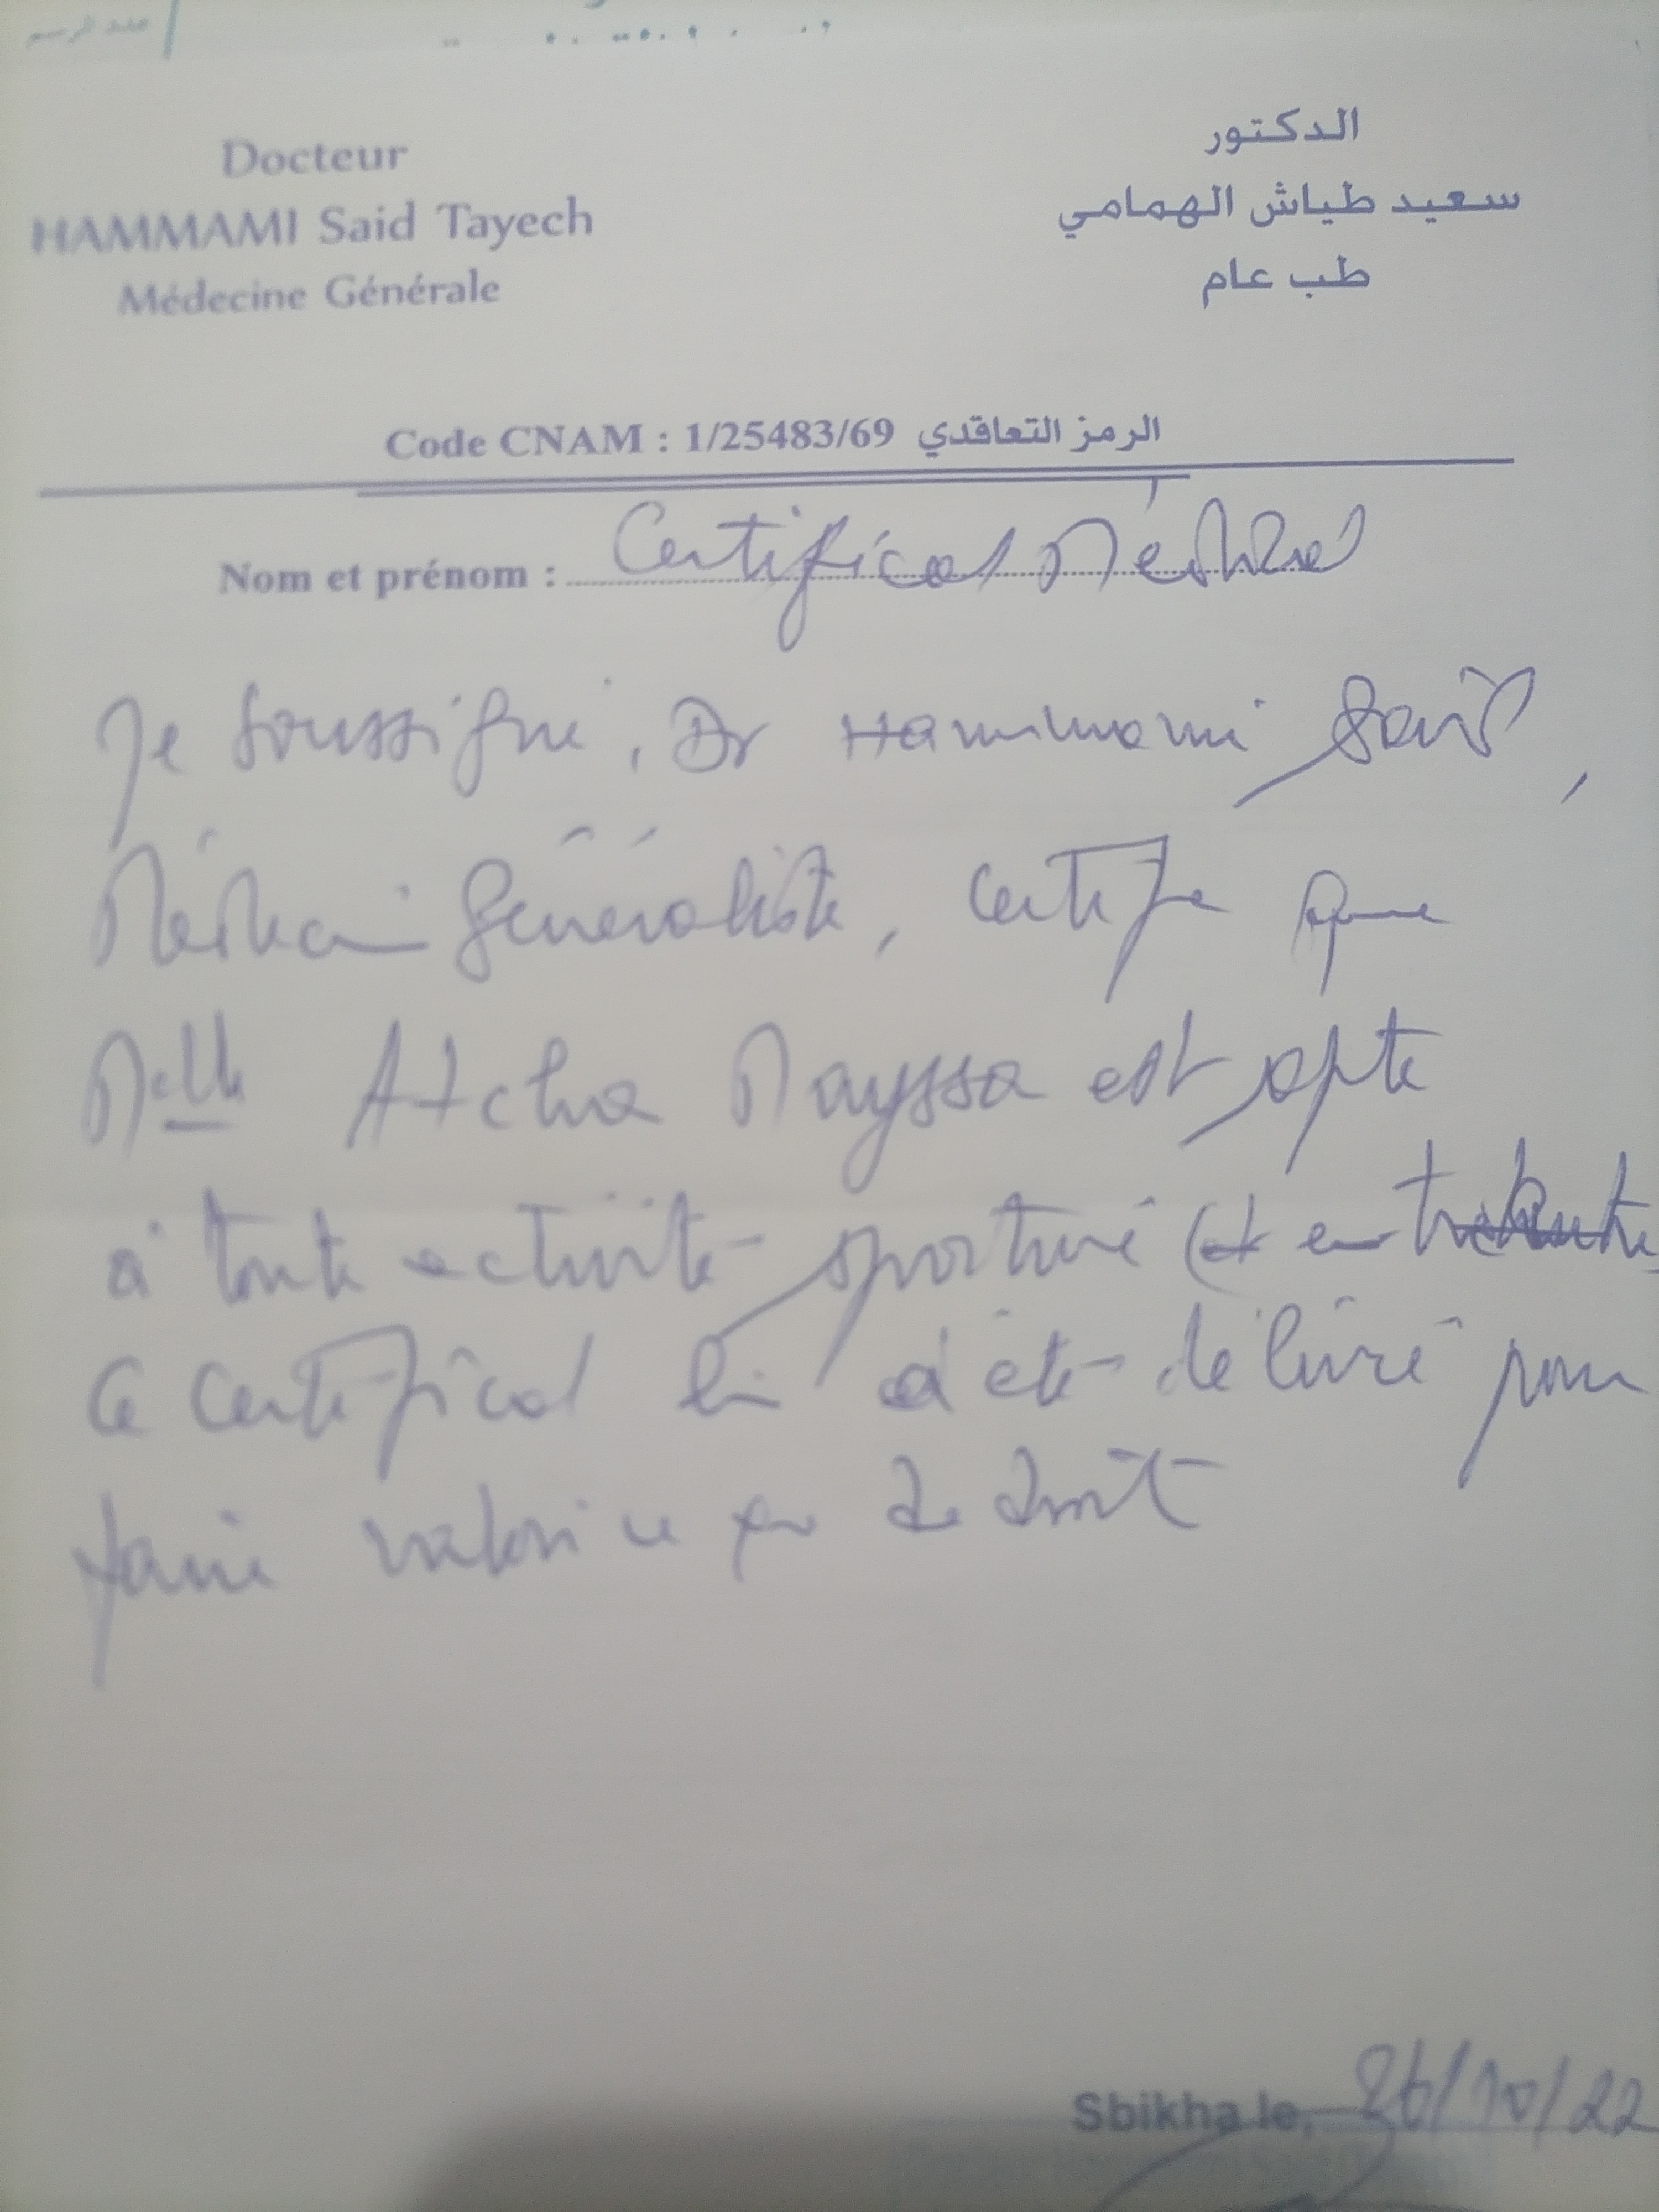 Docteur
HAMMAMI Said Tayech
Médecine Générale
الدكتور
سعيد طياش الهمامي
طب عام
Code CNAM : 1/25483/69 الرمز التعاقدي
Nom et prénom : Certificat Médical
Je soussigné, Dr Hammami Said,
Médecin Généraliste, certifie que
Melle Atcha Mayssa est apte
à toute activité sportive et en
Ce certificat lui a été délivré pour
faire valoir ce que de droit
Sbikha le, 26/10/22